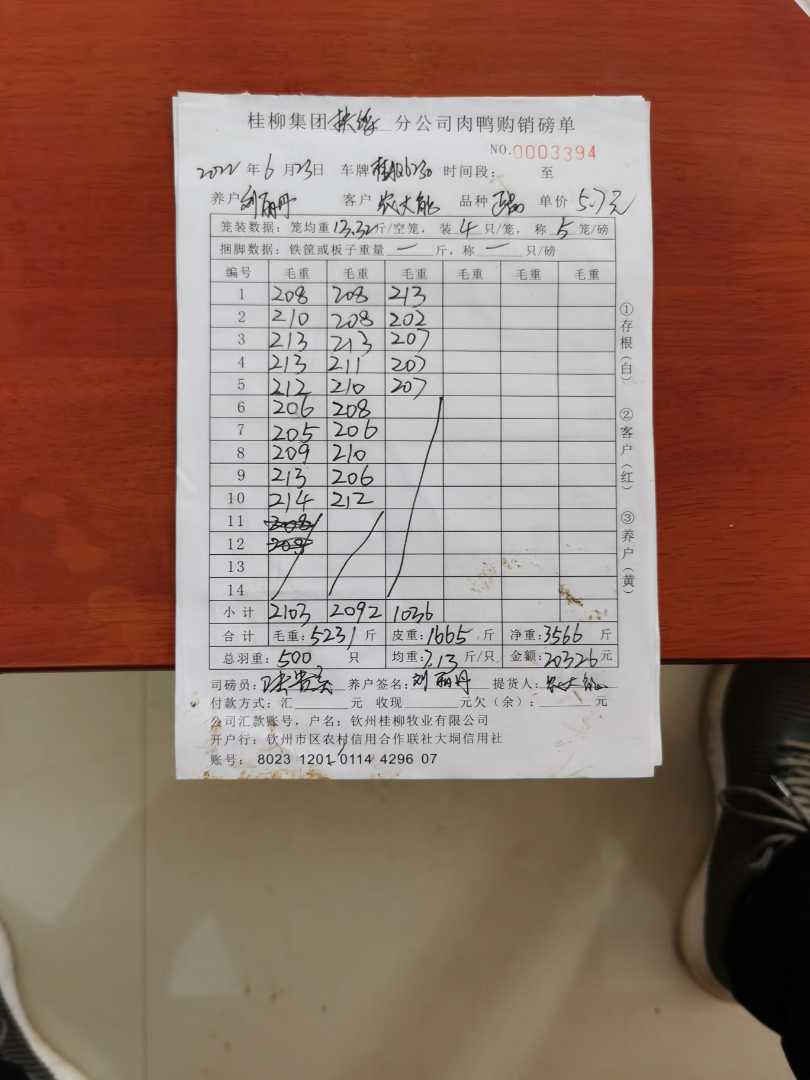 桂柳集团 分公司肉鸭购销磅单
NO.0003394
2022年6月23日 车牌 6230 时间段: 至
养户 刘丽丹 客户 农大能 品种 正品 单价 5.7元
笼装数据:笼均重13.32斤/空笼,装4只/笼,称5笼/磅
捆脚数据:铁筐或板子重量一斤,称一只/磅
编号 毛重 毛重 毛重 毛重 毛重 毛重
1 208 208 213
2 210 208 202
3 213 213 207
4 213 211 207
5 212 210 207
6 206 208
7 205 206
8 209 210
9 213 206
10 214 212
11 208
12 205
13
14
小计 2103 2092 1036
合计 毛重:5231斤 皮重:1665斤 净重:3566斤
总羽重:500只 均重:7.13斤/只 金额:20326元
司磅员: 养户签名:刘丽丹 提货人:农大能
付款方式:汇 元 收现 元欠(余): 元
公司汇款账号,户名:钦州桂柳牧业有限公司
开户行:钦州市区农村信用合作联社大垌信用社
账号: 8023 1201 0114 4296 07
①存根(白) ②客户(红) ③养户(黄)